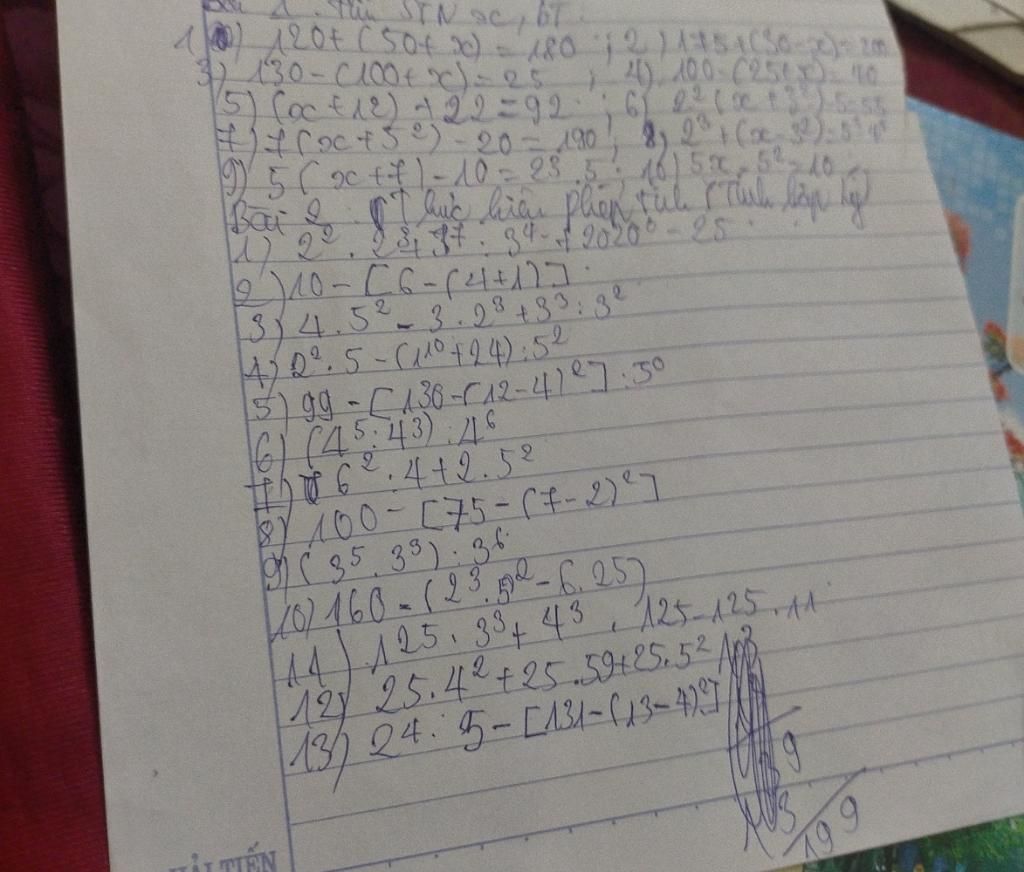 Bài 1. Tìm STN x, bt.
1) 120+(50+x) = 180 ; 2) 175+(30-x)=200
3) 130-(100+x)=25 ; 4) 100-(25+x)=40
5) (x+12)+22=92 ; 6) 2² (x+3²)-5=55
7) 7(x+5²)-20=190 ; 8) 2³+(x-3²)=5³
9) 5(x+7)-10=2³.5 ; 10) 5x-5²=10
Bài 2 Thực hiện phép tính (Tính hợp lý)
1) 2².2³+3⁷:3⁴+2020⁰-25
2) 10-[6-(4+1)]
3) 4.5²-3.2³+3³:3²
4) 2².5-(1¹⁰+24):5²
5) 99-[130-(12-4)²]:5⁰
6) (4⁵:4³):4⁶
7) 6².4+2.5²
8) 100-[75-(7-2)²]
9) (3⁵.3³):3⁶
10) 160-(2³.5²-6.25)
11) 125.3³+4³.125-125.11
12) 25.4²+25.59+25.5²
13) 24:5-[131-(13-4)²]
9
3
199
HẢI TIẾN